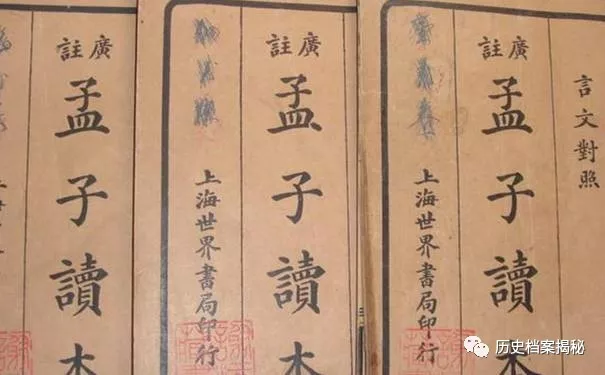 言文對照
廣註
孟子讀本
上海世界書局印行
廣註
孟子讀本
上海世界書局印行
廣註
孟子讀本
历史档案揭秘